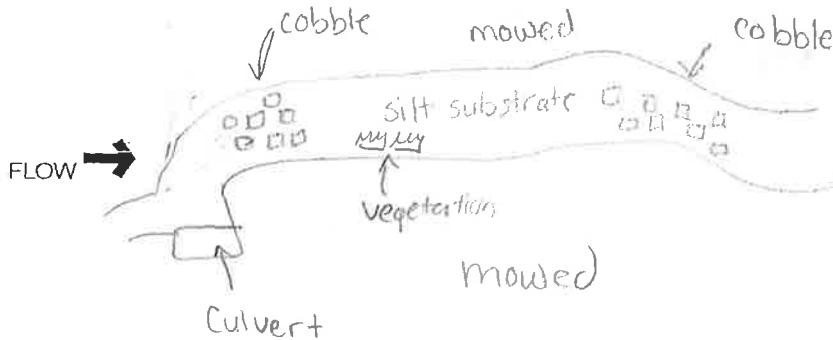 cobble
mowed
cobble
silt substrate
FLOW
vegetation
mowed
Culvert